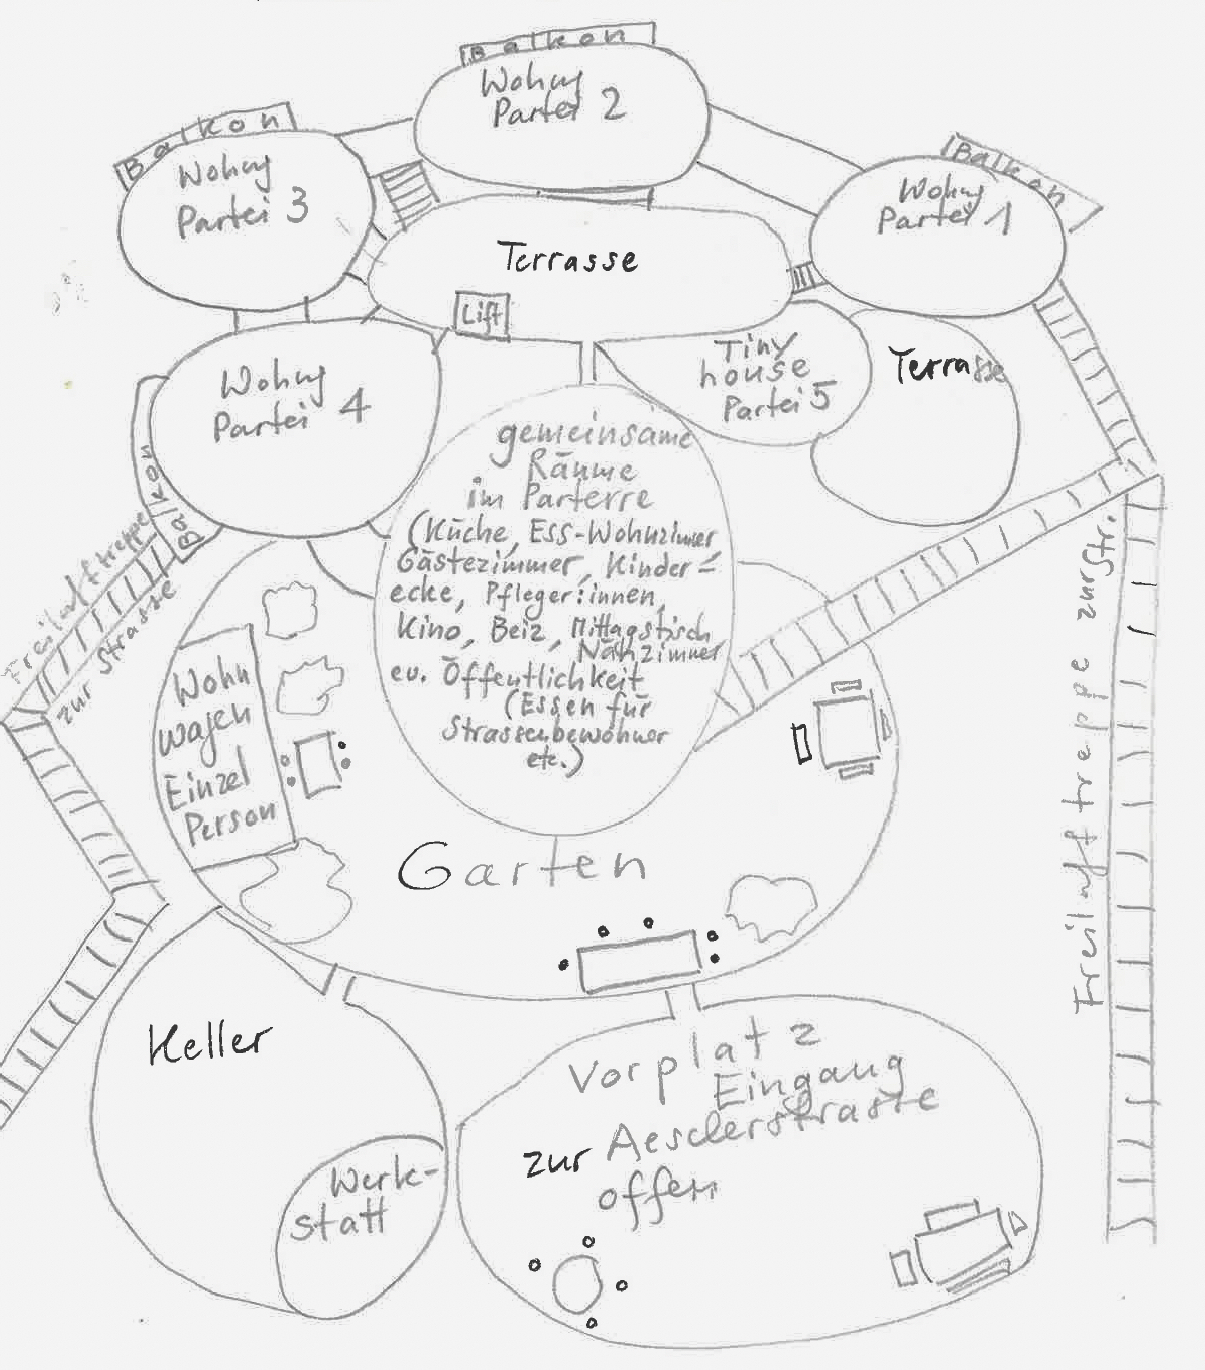 Balkon
Wohng
Partei 2
Balkon
Wohng
Partei 3
Balkon
Wohng
Partei 1
Terrasse
Lift
Tiny
house
Partei 5
Terrasse
Wohng
Partei 4
Balkon
gemeinsame
Räume
im Parterre
(Küche, Ess-Wohnzimmer
Gästezimmer, Kinder=
ecke, Pfleger:innen,
Kino, Beiz, Mittagstisch
Nähzimmer
ev. Öffentlichkeit
(Essen für
Strassenbewohner
etc.)
Freiluftreppe
zur Strasse
Wohn
wagen
Einzel
Person
Garten
Freiluftreppe zur Str.
Keller
Werk-
statt
Vorplatz
Eingang
zur Aesclerstrasse
offen